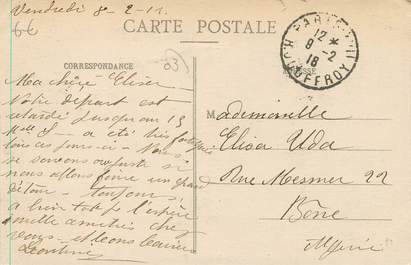 Vendredi 8-2-18.
66
CARTE POSTALE
CORRESPONDANCE
03
PARIS
12 *
8 -2
18
R. JOUFFROY
Ma chère Elisa
Notre départ est
retardé jusqu'au 13
Melle S- a été très fatiguée
tous ces jours-ci - Nous
ne savons au juste si
nous allons faire un grand
détour - toujours,
à bientôt je l'espère
mille amitiés chez
vous - et bons baisers
Leontine
Mademoiselle
Elisa Uda
Rue Mesmer 22
Bône
Algérie